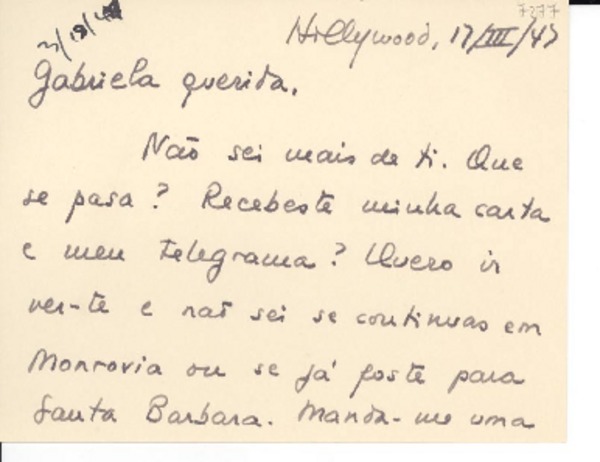 7277
Hollywood, 17/III/47
Gabriela querida,
Não sei mais de ti. Que
se pasa? Recebeste minha carta
e meu telegrama? Quero ir
ver-te e não sei se continuas em
Monrovia ou se já foste para
Santa Barbara. Manda-me uma